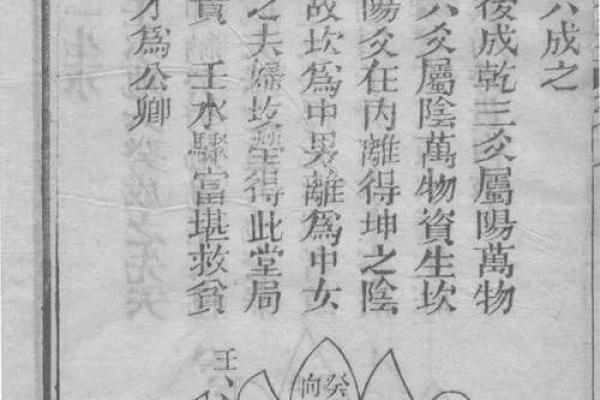 六成之
後成乾三爻屬陽萬物
六爻屬陰萬物資生坎
陽爻在内離得坤之陰
故坎為中男離為中女
之夫婦坟塋得此堂局
貴 壬水驟富堪救貧
才為公卿
壬
癸
向